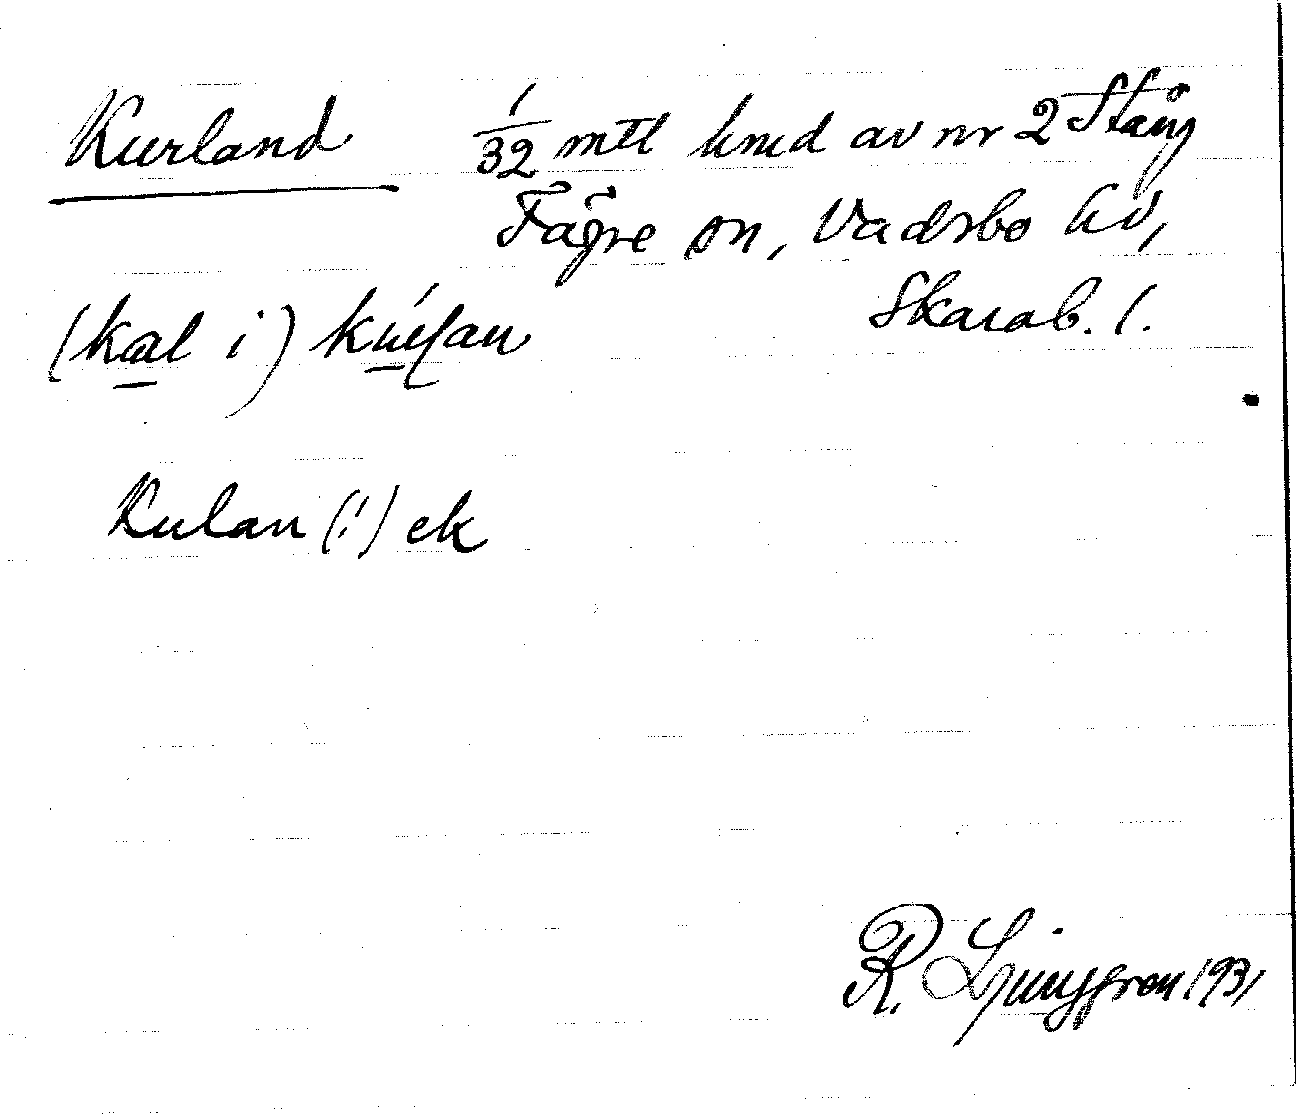 Kurland 1/32 mtl hmd av nr 2 Stång
Fägre sn, Vadsbo hd,
Skarab. l.
(kal i)
Kulan (!) ek
R. Ljunggren 1931